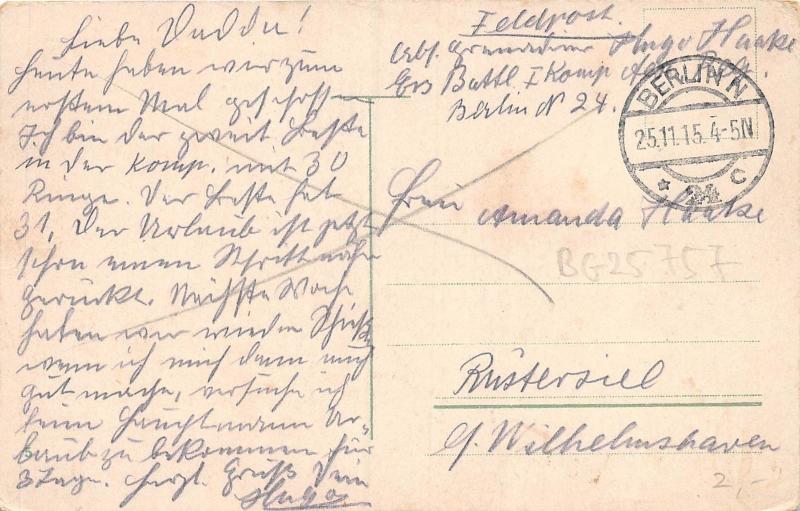 Liebe
heute haben wir zum
erstem Mal geschossen
Ich bin der zweit beste
in der Komp. mit 30
Ringe. Der beste hat
31, Der Urlaub ist jetzt
schon einen Schritt näher
gerückt. Nächste Woche
haben wir wieder
wenn ich mich dann auch
gut mache, versuche ich
beim Hauptmann Ur-
laub zu bekommen für
3 Tage. herzl. Gruß Dein
Hugo
Feldpost.
Abs. Grenadier Hugo Haake
Ers Battl. I Komp
Berlin N 24.
BERLIN N
25.11.15. 4-5N
* 24 c
Frau
Amanda Haake
BG25757
Rüstersiel
b/ Wilhelmshaven
2,-